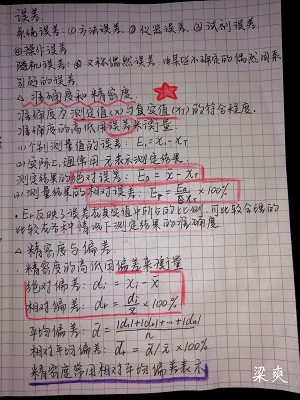 误差
系统误差：①方法误差、②仪器误差、③试剂误差、
④操作误差
随机误差：又称偶然误差，由某些不确定的偶然因素
引起的误差
△准确度和精密度
准确度为测定值(x)与真实值(xT)的符合程度.
准确度的高低用误差来衡量.
(1)个别测量值的误差：E₁=x₁-xT
(2)实际上，通常用x̄表示测定结果.
测定结果的绝对误差：Ea=x̄-xT
(3)测量结果的相对误差：Er=Ea/xT×100%
•Er反映了误差在真值中所占的比例，可比较合理的
比较各种情况下测定结果的准确度.
△精密度与偏差
精密度的高低用偏差来衡量
绝对偏差：di=xi-x̄
相对偏差：dr=di/x̄×100%
平均偏差：d̄=|d₁|+|d₂|+…+|dn|/n
相对平均偏差：d̄r=d̄/x̄×100%
精密度常用相对平均偏差表示
梁爽